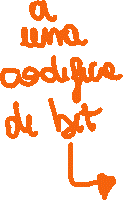 a
una
codifica
di bit